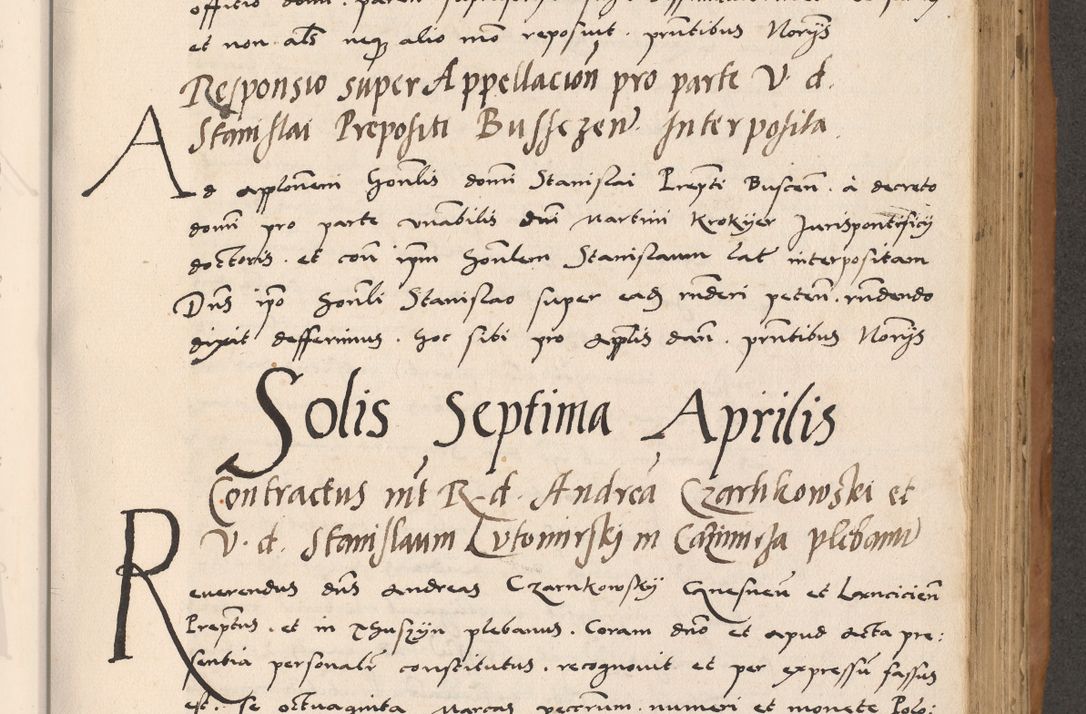 et non als neqз alio mo reposuit. pntibus Norijs
Responsio super Appellacion pro parte V. d.
Stanislai Prepositi Bussczen. Interposita
Ad applonem honlis domni Stanislai Prepti Buscen. à decreto
domni pro parte vnabilis dni Martini Krokyer Jurispontificij
doctoris. et con ipm honlem Stanislaum lat interpositam
Dns ipo honli Stanislao super ead rnderi peten. rndendo
dixit defferimus. hoc sibi pro applis dan. pntibus Norijs
Solis Septima Aprilis
Contractus int R. d. Andrea Czarnkowski et
V. d. Stanislaum Lutomirskj in Cazimirza plebanu
Reuerendus dns Andreas Czarnkowskij Gnesnen et Lancicien
Preptus. et in Thuszijn plebanus. Coram dno et apud acta pre:
sentia personalr constitutus. recognouit et per expressu fassus
est. se octuaginta Marcas pecorum. numeri et monete Polo: